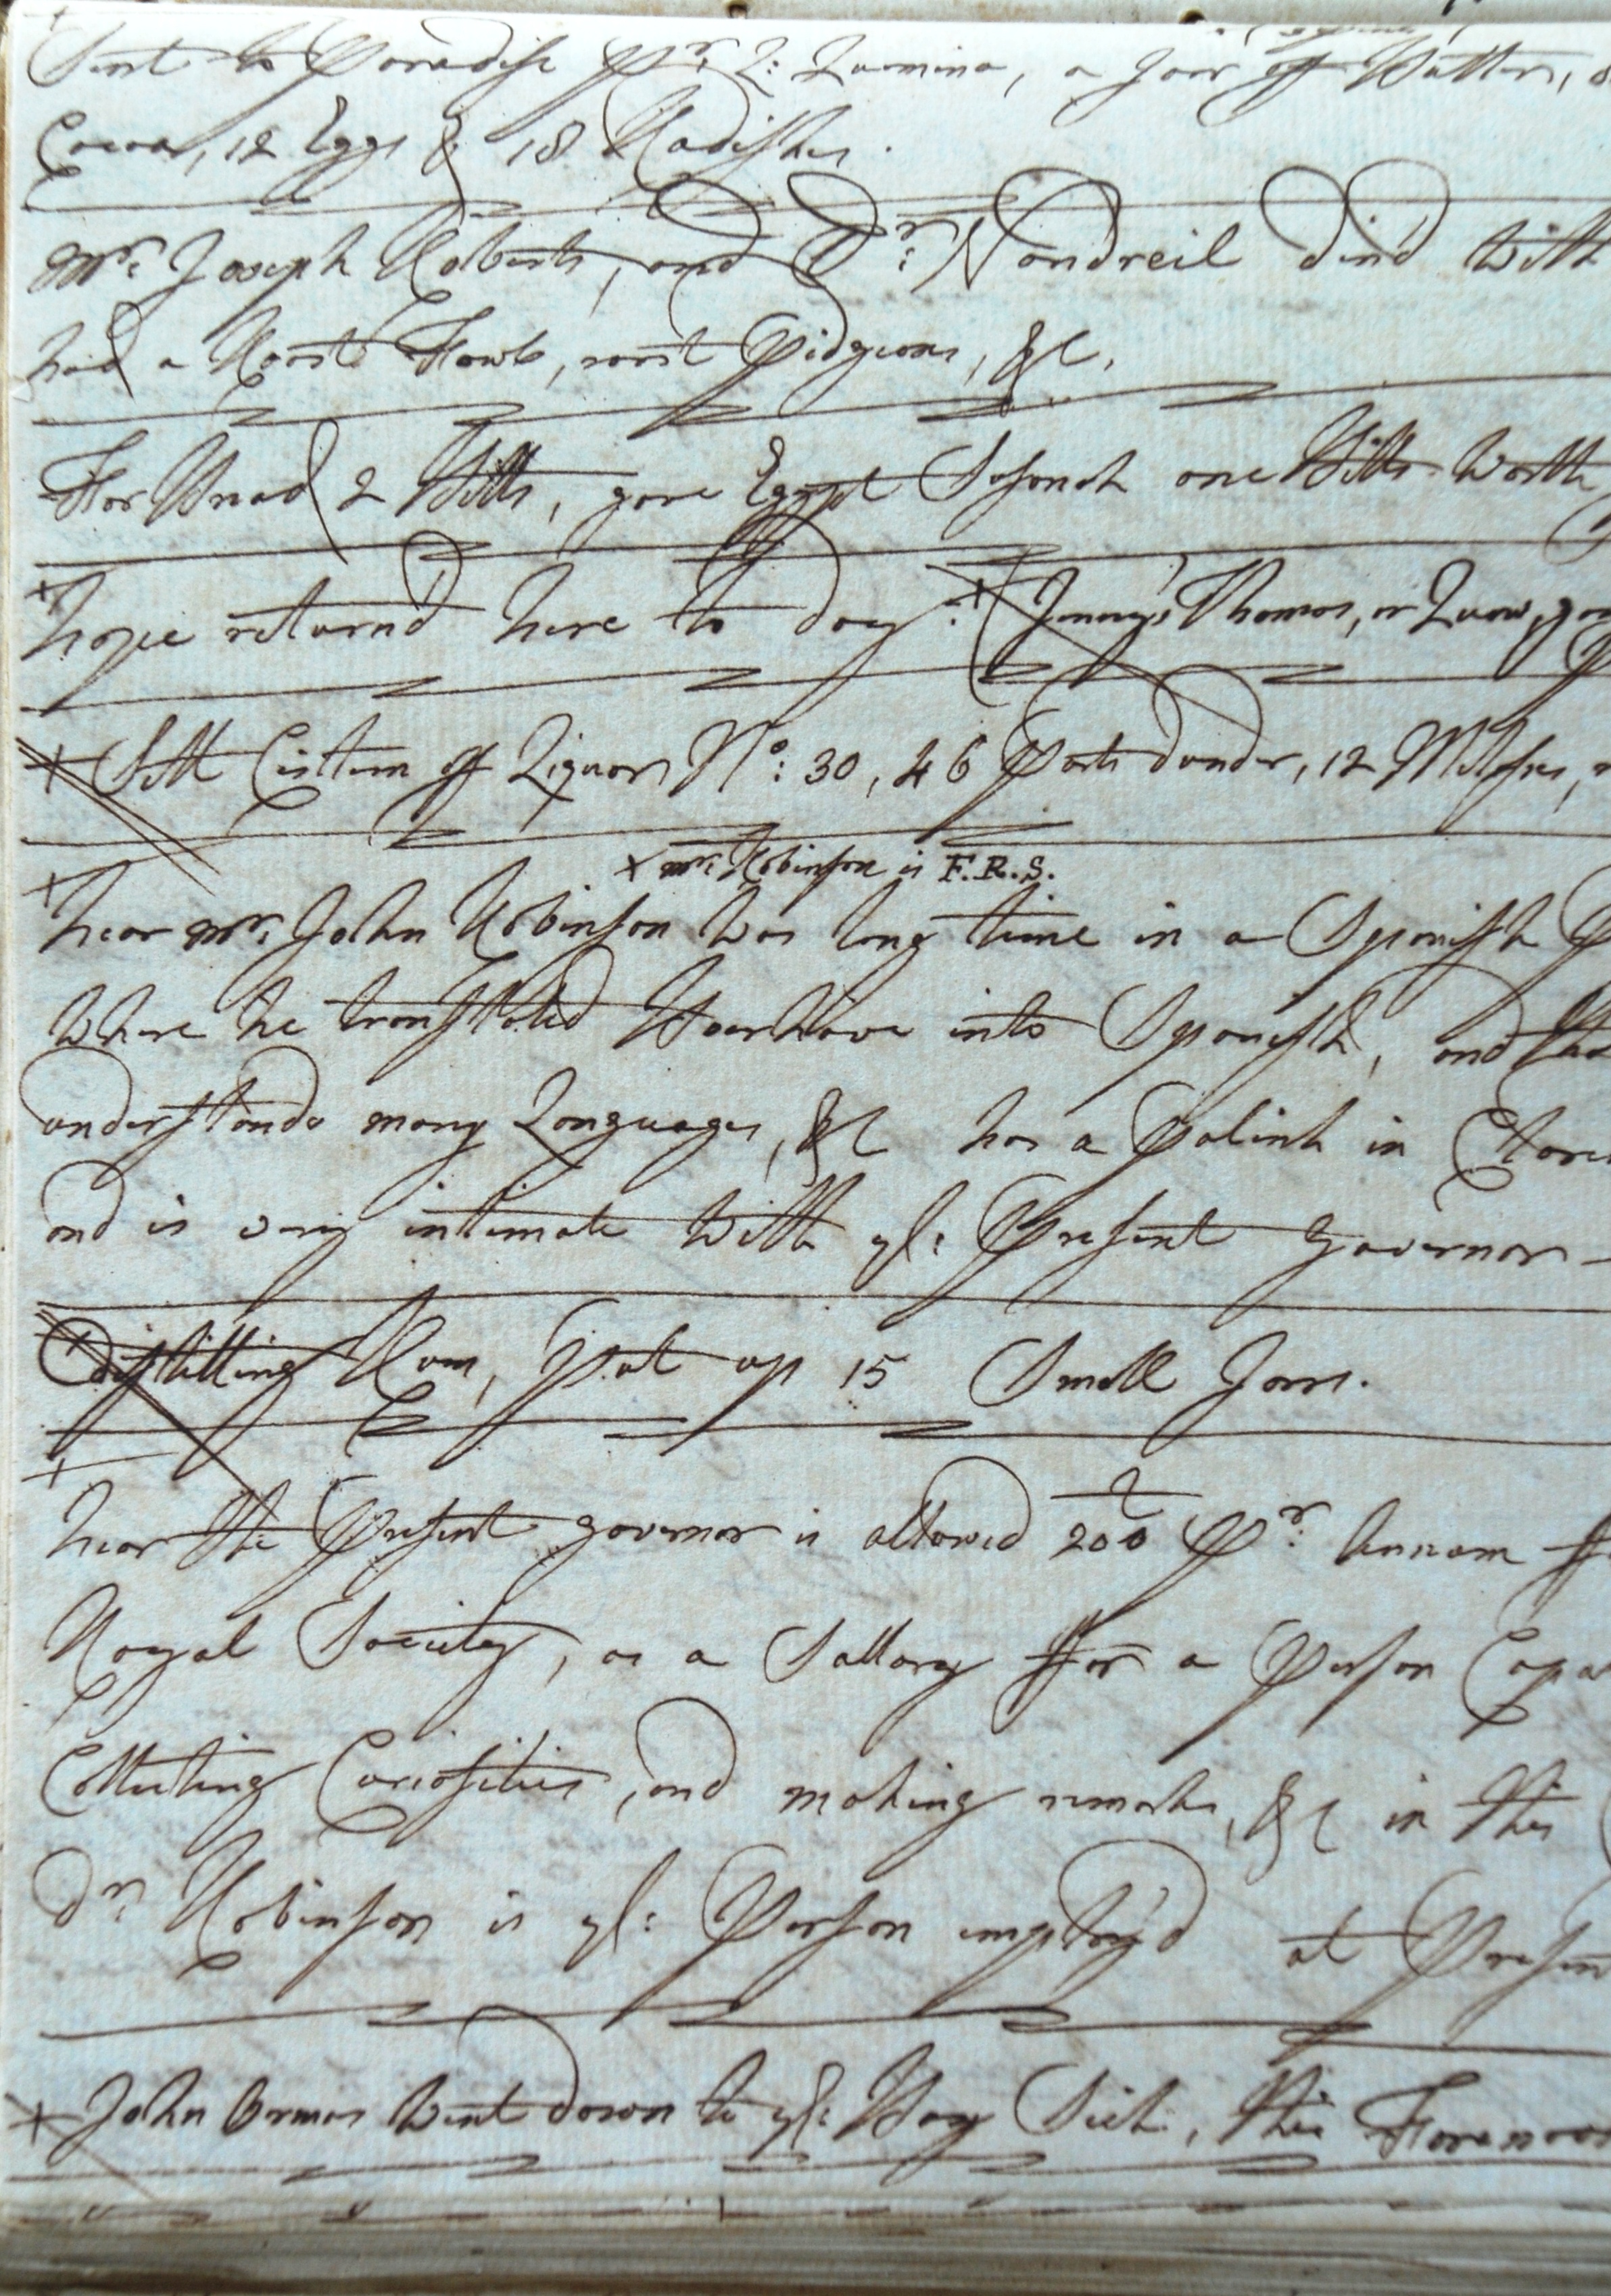 Sent to Paradise Pr: L: Quamina, a Jarr of Butter,
Cocoa, 12 Eggs & 18 Radishes.
mr: Joseph Roberts, and Dr: Wandreil din'd with
had a Roast Fowl, roast Pidgeons, &c.
For Bread 2 Bitts, gave Egypt Susanah one Bitts worth
hope return'd here to day: Jenny's Thomas, or Quaw,
Sett Cistern of Liquor No: 30, 46 Parts dunder, 12 Milases,
mr: Robinson is F.R.S.
hear mr: John Robinson was long time in a Spanish
where he translated Boerhave into Spanish, and
understands many Languages, &c has a Palink in
and is very intimate with ye: Present Governor
distilling Rum, Put up 15 Small Jarrs.
hear the Present governor is allowed 200 Pr: Annum
Royal Society, as a Sallary for a Person
Collecting Curiosities, and making remarks, &c in this
dr: Robinson is ye: Person employ'd at
John Ormas went down to ye: Bay Sick, this